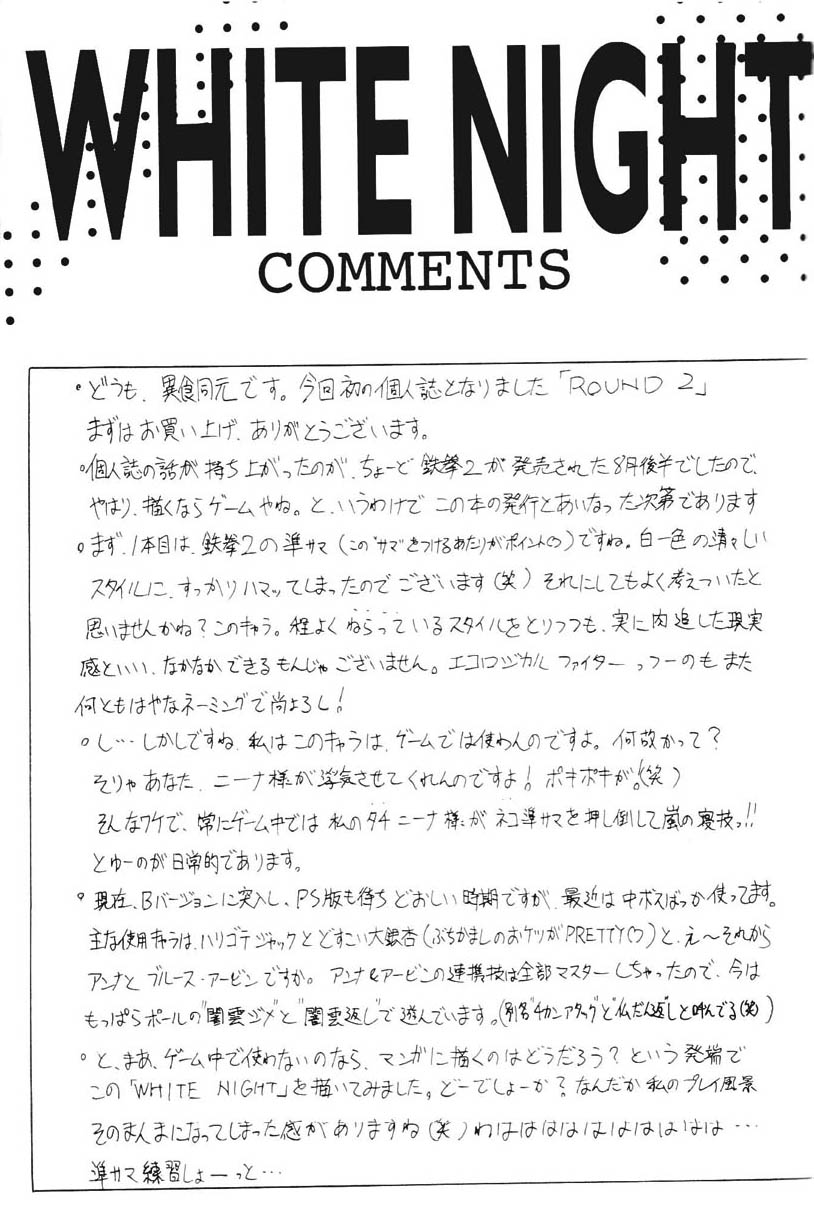 WHITE NIGHT
COMMENTS
•どうも、異食同元です。今回初の個人誌となりました「ROUND 2」
まずはお買い上げ、ありがとうございます。
•個人誌の話が持ち上がったのが、ちょーど鉄拳2が発売された8月後半でしたので、
やはり、描くならゲームやね。と、いうわけでこの本の発行とあいなった次第であります
•まず、1本目は、鉄拳2の準サマ(この“サマ”をつけるあたりがポイント♡)ですね。白一色の清々しい
スタイルに、すっかりハマッてしまったのでございます(笑)それにしてもよく考えついたと
思いませんかね?このキャラ。程よくねらっているスタイルをとりつつも、実に肉迫した現実
感といい、なかなかできるもんじゃございません。エコロジカルファイターっつーのもまた
何ともはやなネーミングで尚よろし!
•し…しかしですね、私はこのキャラは、ゲームでは使わんのですよ。何故かって?
そりゃあなた、ニーナ様が浮気させてくれんのですよ!ポキポキが。(笑)
そんなワケで、常にゲーム中では私のタチニーナ様がネコ準サマを押し倒して嵐の寝技っ!!
とゆーのが日常的であります。
•現在、Bバージョンに突入し、PS版も待ちどおしい時期ですが、最近は中ボスばっか使ってます。
主な使用キャラは、ハリゴテジャックとどすこい大銀杏(ぶちかましのおケツがPRETTY♡)と、え〜それから
アンナとブルース・アービンですか。アンナ&アービンの連携技は全部マスターしちゃったので、今は
もっぱらポールの“闇雲ジメ”と“闇雲返し”で遊んでいます。(別名“チカンアタック”と“仏だん返し”と呼んでる(笑)
•と、まあ、ゲーム中で使わないのなら、マンガに描くのはどうだろう?という発端で
この「WHITE NIGHT」を描いてみました。どーでしょーか?なんだか私のプレイ風景
そのまんまになってしまった感がありますね(笑)わはははははははははは…
準サマ練習しょーっと…